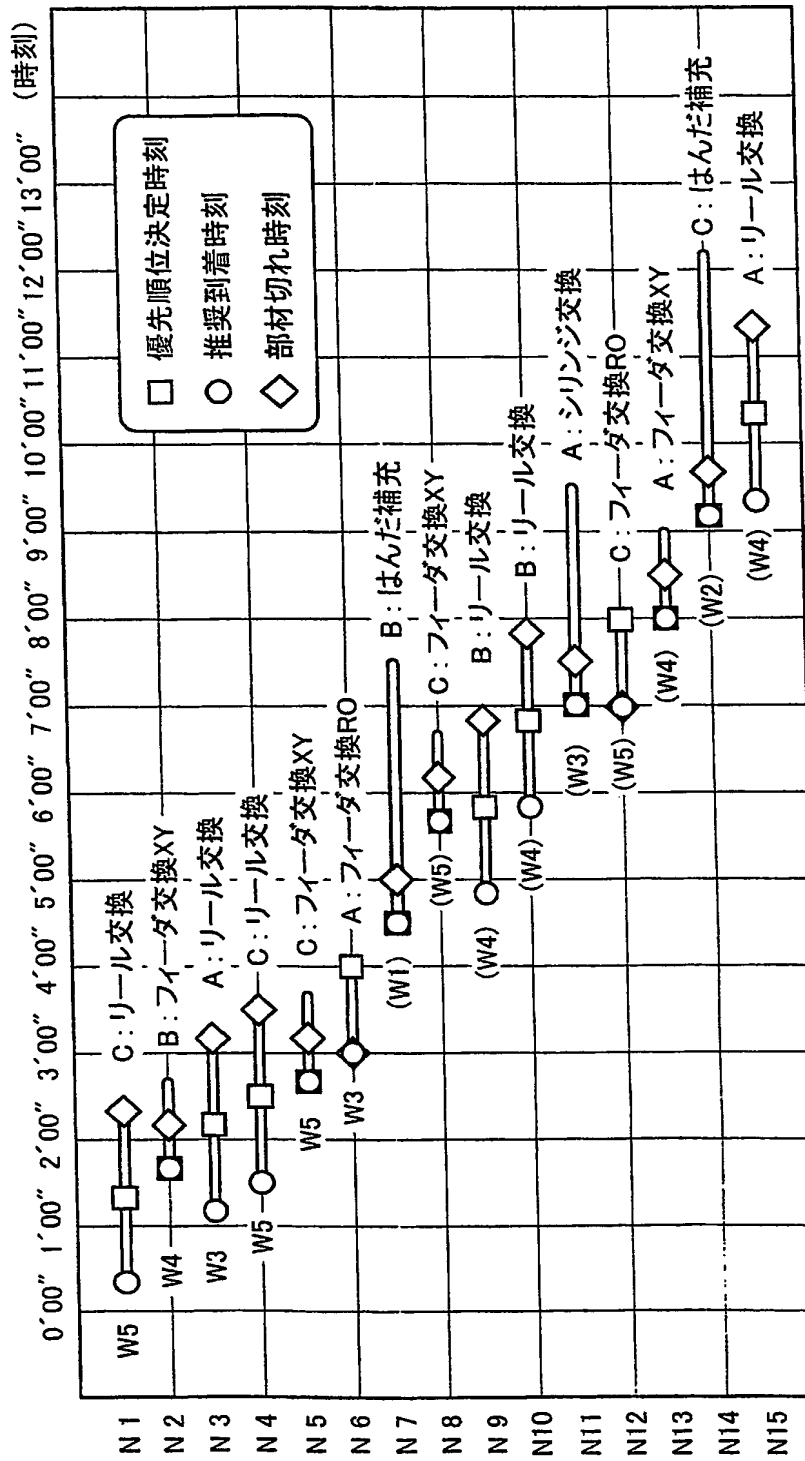 0′00″ 1′00″ 2′00″ 3′00″ 4′00″ 5′00″ 6′00″ 7′00″ 8′00″ 9′00″ 10′00″ 11′00″ 12′00″ 13′00″ (時刻)
□ 優先順位決定時刻
○ 推奨到着時刻
◇ 部材切れ時刻
N1 W5 C:リール交換
N2 W4 B:フィーダ交換XY
N3 W3 A:リール交換
N4 W5 C:リール交換
N5 W5 C:フィーダ交換XY
N6 W3 A:フィーダ交換RO
N7 (W1) B:はんだ補充
N8 (W5) C:フィーダ交換XY
N9 (W4) B:リール交換
N10 (W4) B:リール交換
N11 (W3) A:シリンジ交換
N12 (W5) C:フィーダ交換RO
N13 (W4) A:フィーダ交換XY
N14 (W2) C:はんだ補充
N15 (W4) A:リール交換